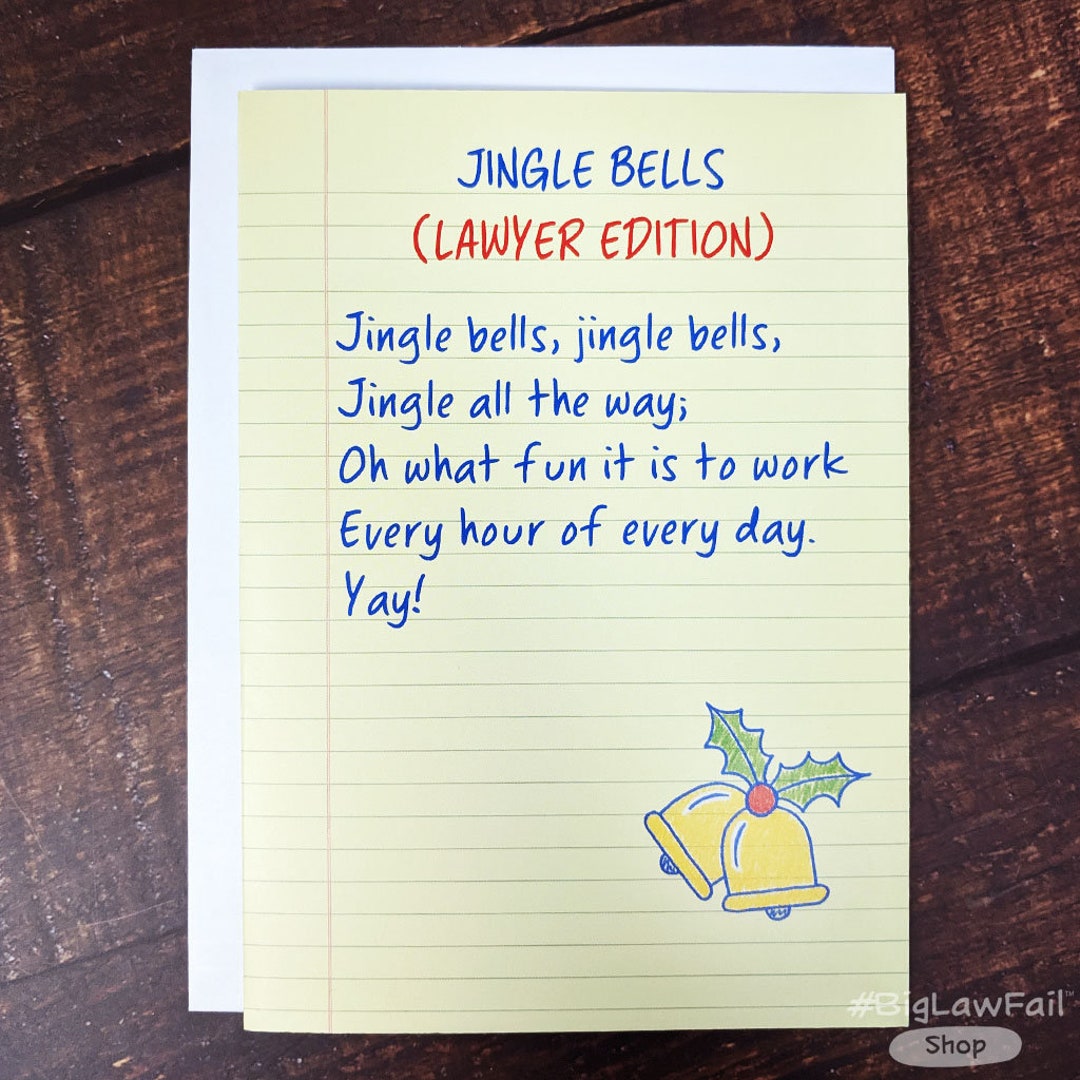 JINGLE BELLS
(LAWYER EDITION)
Jingle bells, jingle bells,
Jingle all the way;
Oh what fun it is to work
Every hour of every day.
Yay!
#BigLawFail™
Shop